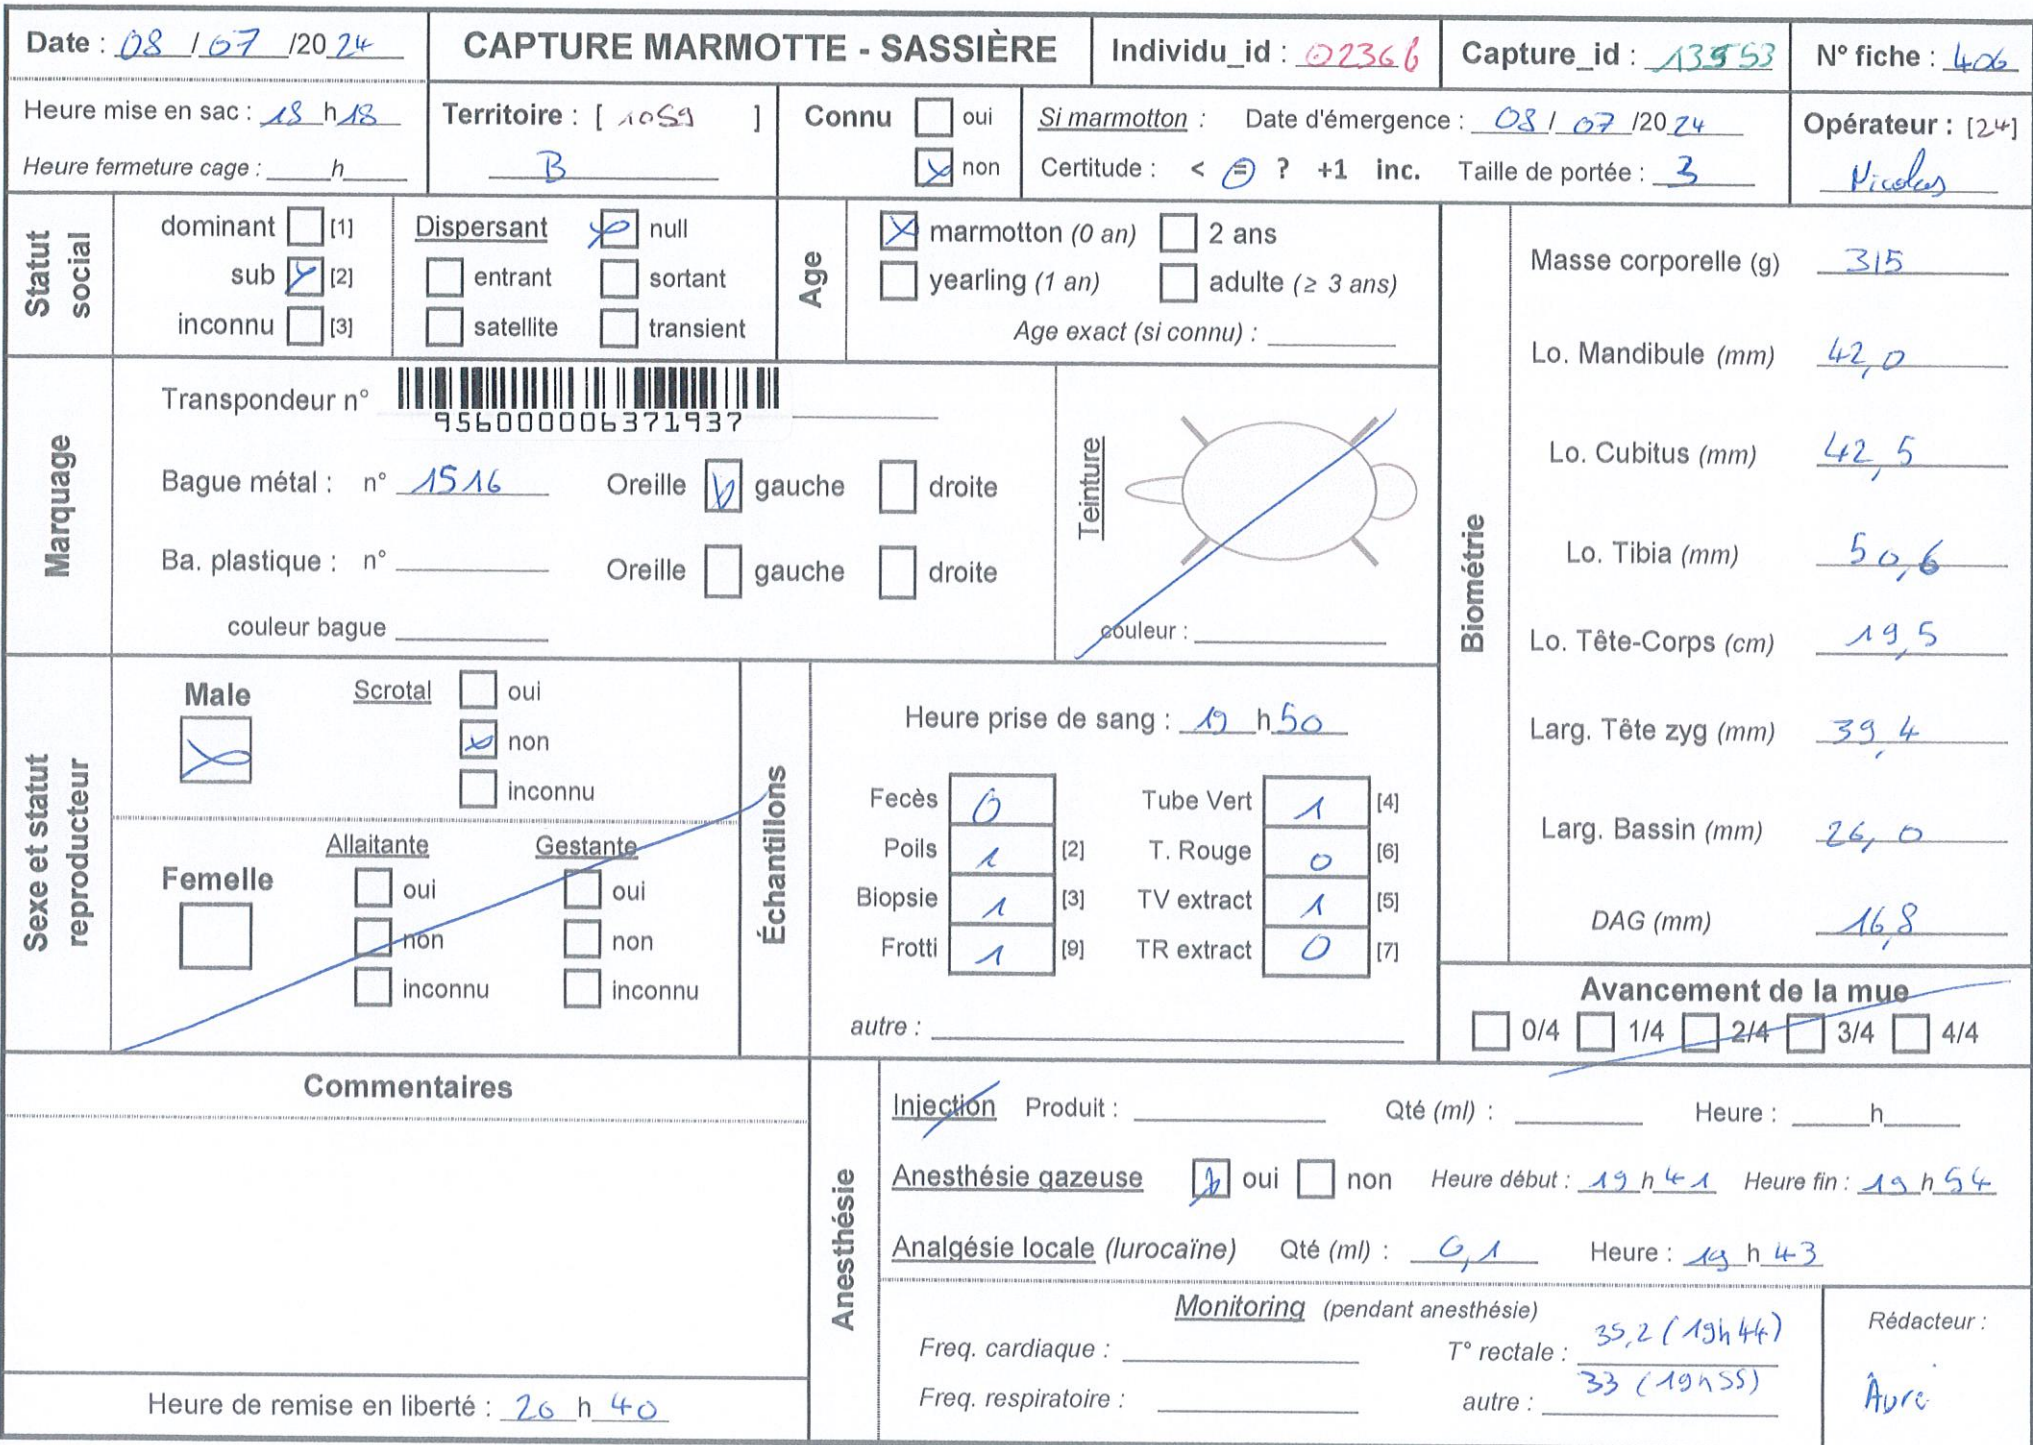 Date : 08 / 07 /20 24
CAPTURE MARMOTTE - SASSIÈRE
Individu_id : 02366
Capture_id : 13553
N° fiche : 406
Heure mise en sac : 18 h 18
Heure fermeture cage : ____h____
Territoire : [ 1059 ]
B
Connu
oui
non
Si marmotton : Date d'émergence : 08 / 07 /20 24
Certitude : < = ? +1 inc. Taille de portée : 3
Opérateur : [24]
Nicolas
Statut social
dominant [1]
sub [2]
inconnu [3]
Dispersant
null
entrant
sortant
satellite
transient
Age
marmotton (0 an)
2 ans
yearling (1 an)
adulte (≥ 3 ans)
Age exact (si connu) :
Marquage
Transpondeur n°
956000006371937
Bague métal : n° 1516 Oreille gauche droite
Ba. plastique : n° Oreille gauche droite
couleur bague
Teinture
couleur :
Biométrie
Masse corporelle (g) 315
Lo. Mandibule (mm) 42,0
Lo. Cubitus (mm) 42,5
Lo. Tibia (mm) 50,6
Lo. Tête-Corps (cm) 19,5
Larg. Tête zyg (mm) 39,4
Larg. Bassin (mm) 26,0
DAG (mm) 16,8
Avancement de la mue
0/4 1/4 2/4 3/4 4/4
Sexe et statut reproducteur
Male
Scrotal
oui
non
inconnu
Femelle
Allaitante
oui
non
inconnu
Gestante
oui
non
inconnu
Échantillons
Heure prise de sang : 19 h 50
Fecès 0 Tube Vert 1 [4]
Poils 1 [2] T. Rouge 0 [6]
Biopsie 1 [3] TV extract 1 [5]
Frotti 1 [9] TR extract 0 [7]
autre :
Commentaires
Heure de remise en liberté : 20 h 40
Anesthésie
Injection Produit : Qté (ml) : Heure : ____h____
Anesthésie gazeuse oui non Heure début : 19 h 41 Heure fin : 19 h 54
Analgésie locale (lurocaïne) Qté (ml) : 0,1 Heure : 19 h 43
Monitoring (pendant anesthésie)
Freq. cardiaque :
T° rectale : 35,2 (19h44)
33 (19h55)
Freq. respiratoire :
autre :
Rédacteur :